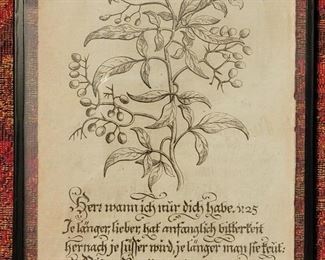 Herr wann ich nur dich habe. v. 25
Je länger, lieber, hat anfänglich bitterkeit
hernach je süsser wird, je länger man sie keüt: